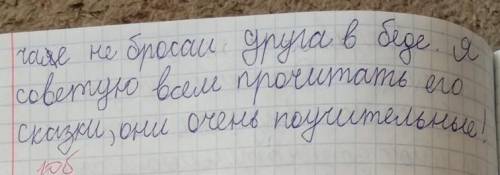 чаще не бросай друга в беде. Я
советую всем прочитать его
сказки, они очень поучительные!